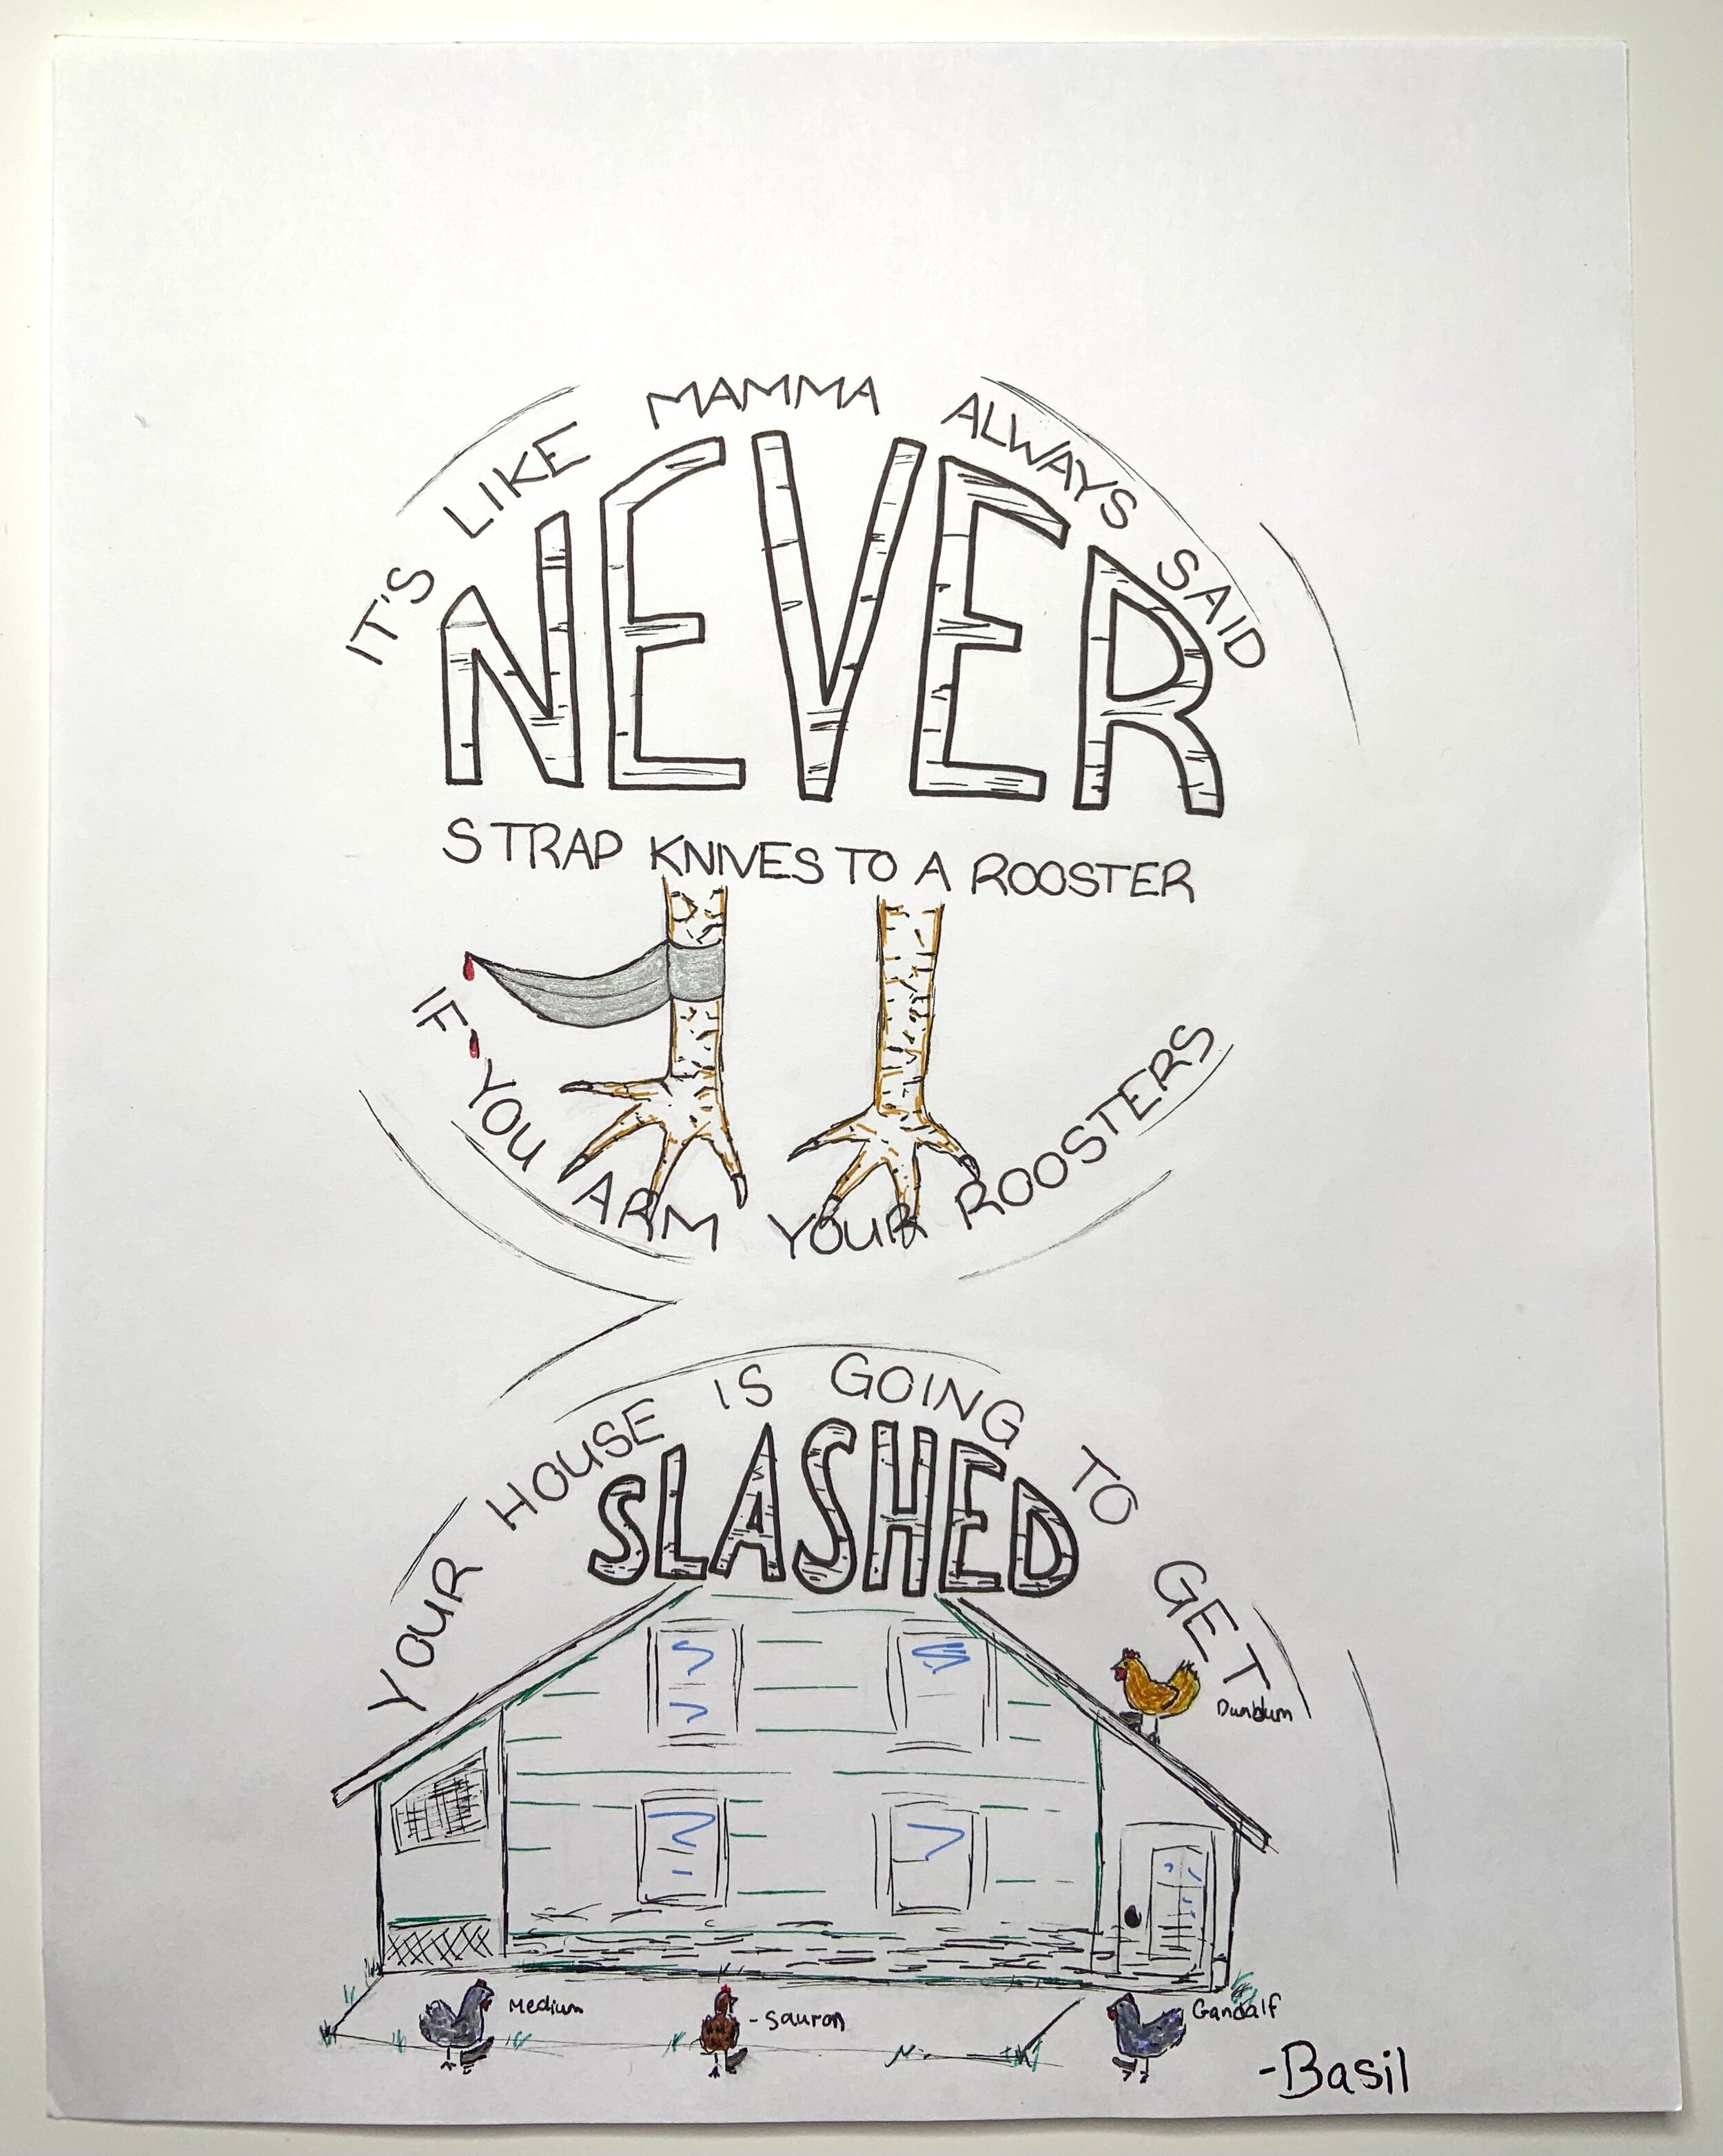 IT'S LIKE MAMMA ALWAYS SAID
NEVER
STRAP KNIVES TO A ROOSTER
IF YOU ARM YOUR ROOSTERS
YOUR HOUSE IS GOING TO GET
SLASHED
Dumblum
Medium
- Sauron
Gandalf
-Basil